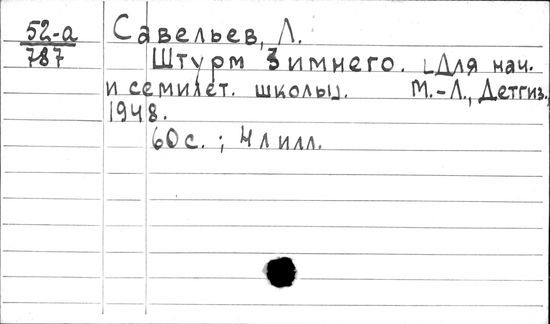 52-а Савельев, Л.
787 Штурм Зимнего. [Для нач.
и семилет. школы]. М.-Л., Детгиз,
1948.
60 с. ; 4 л илл.